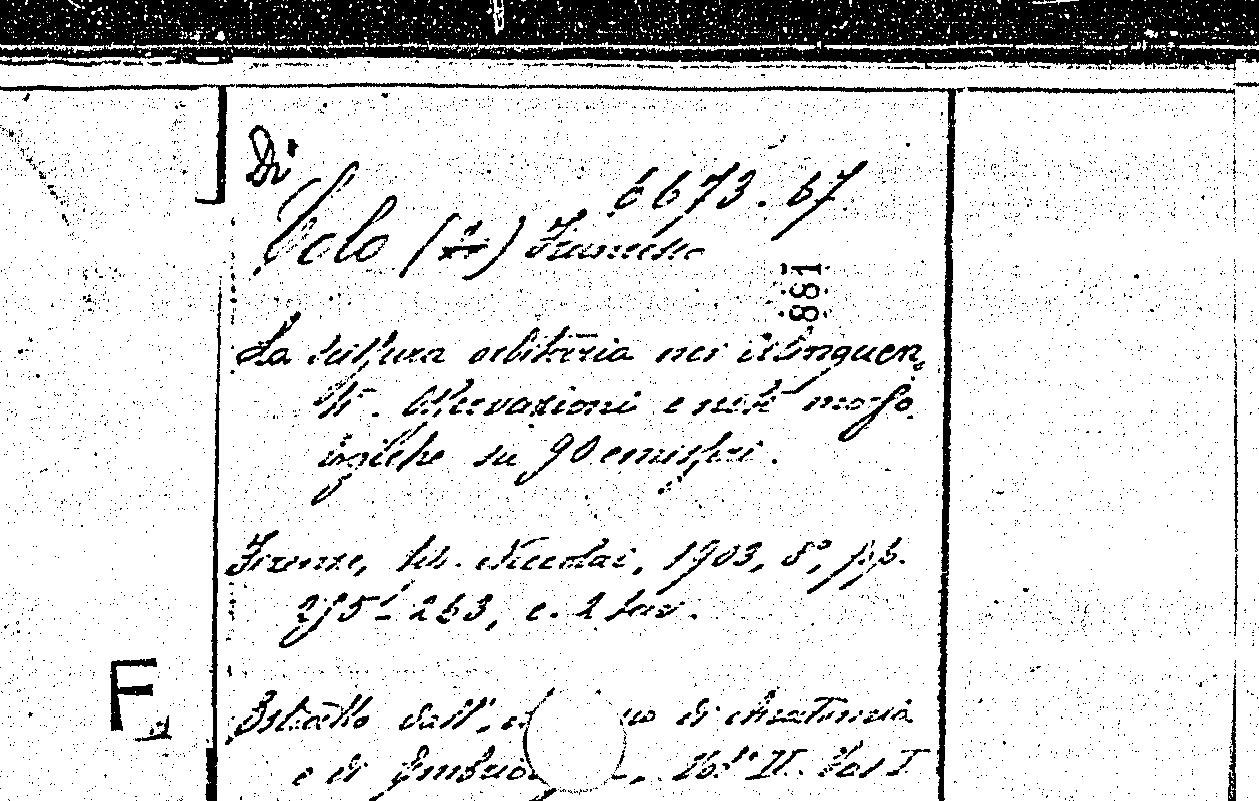 Di
6673.67
Colo (di) Francesco
881
La scissura orbitaria nei delinquen
ti. Osservazioni e note morfo
logiche su 90 emisferi.
Firenze, tip. Niccolai, 1903, 8°, pp.
263, c. 2 tav.
Estratto dall' di Anatomia
e di Vol° II. Fas I
F